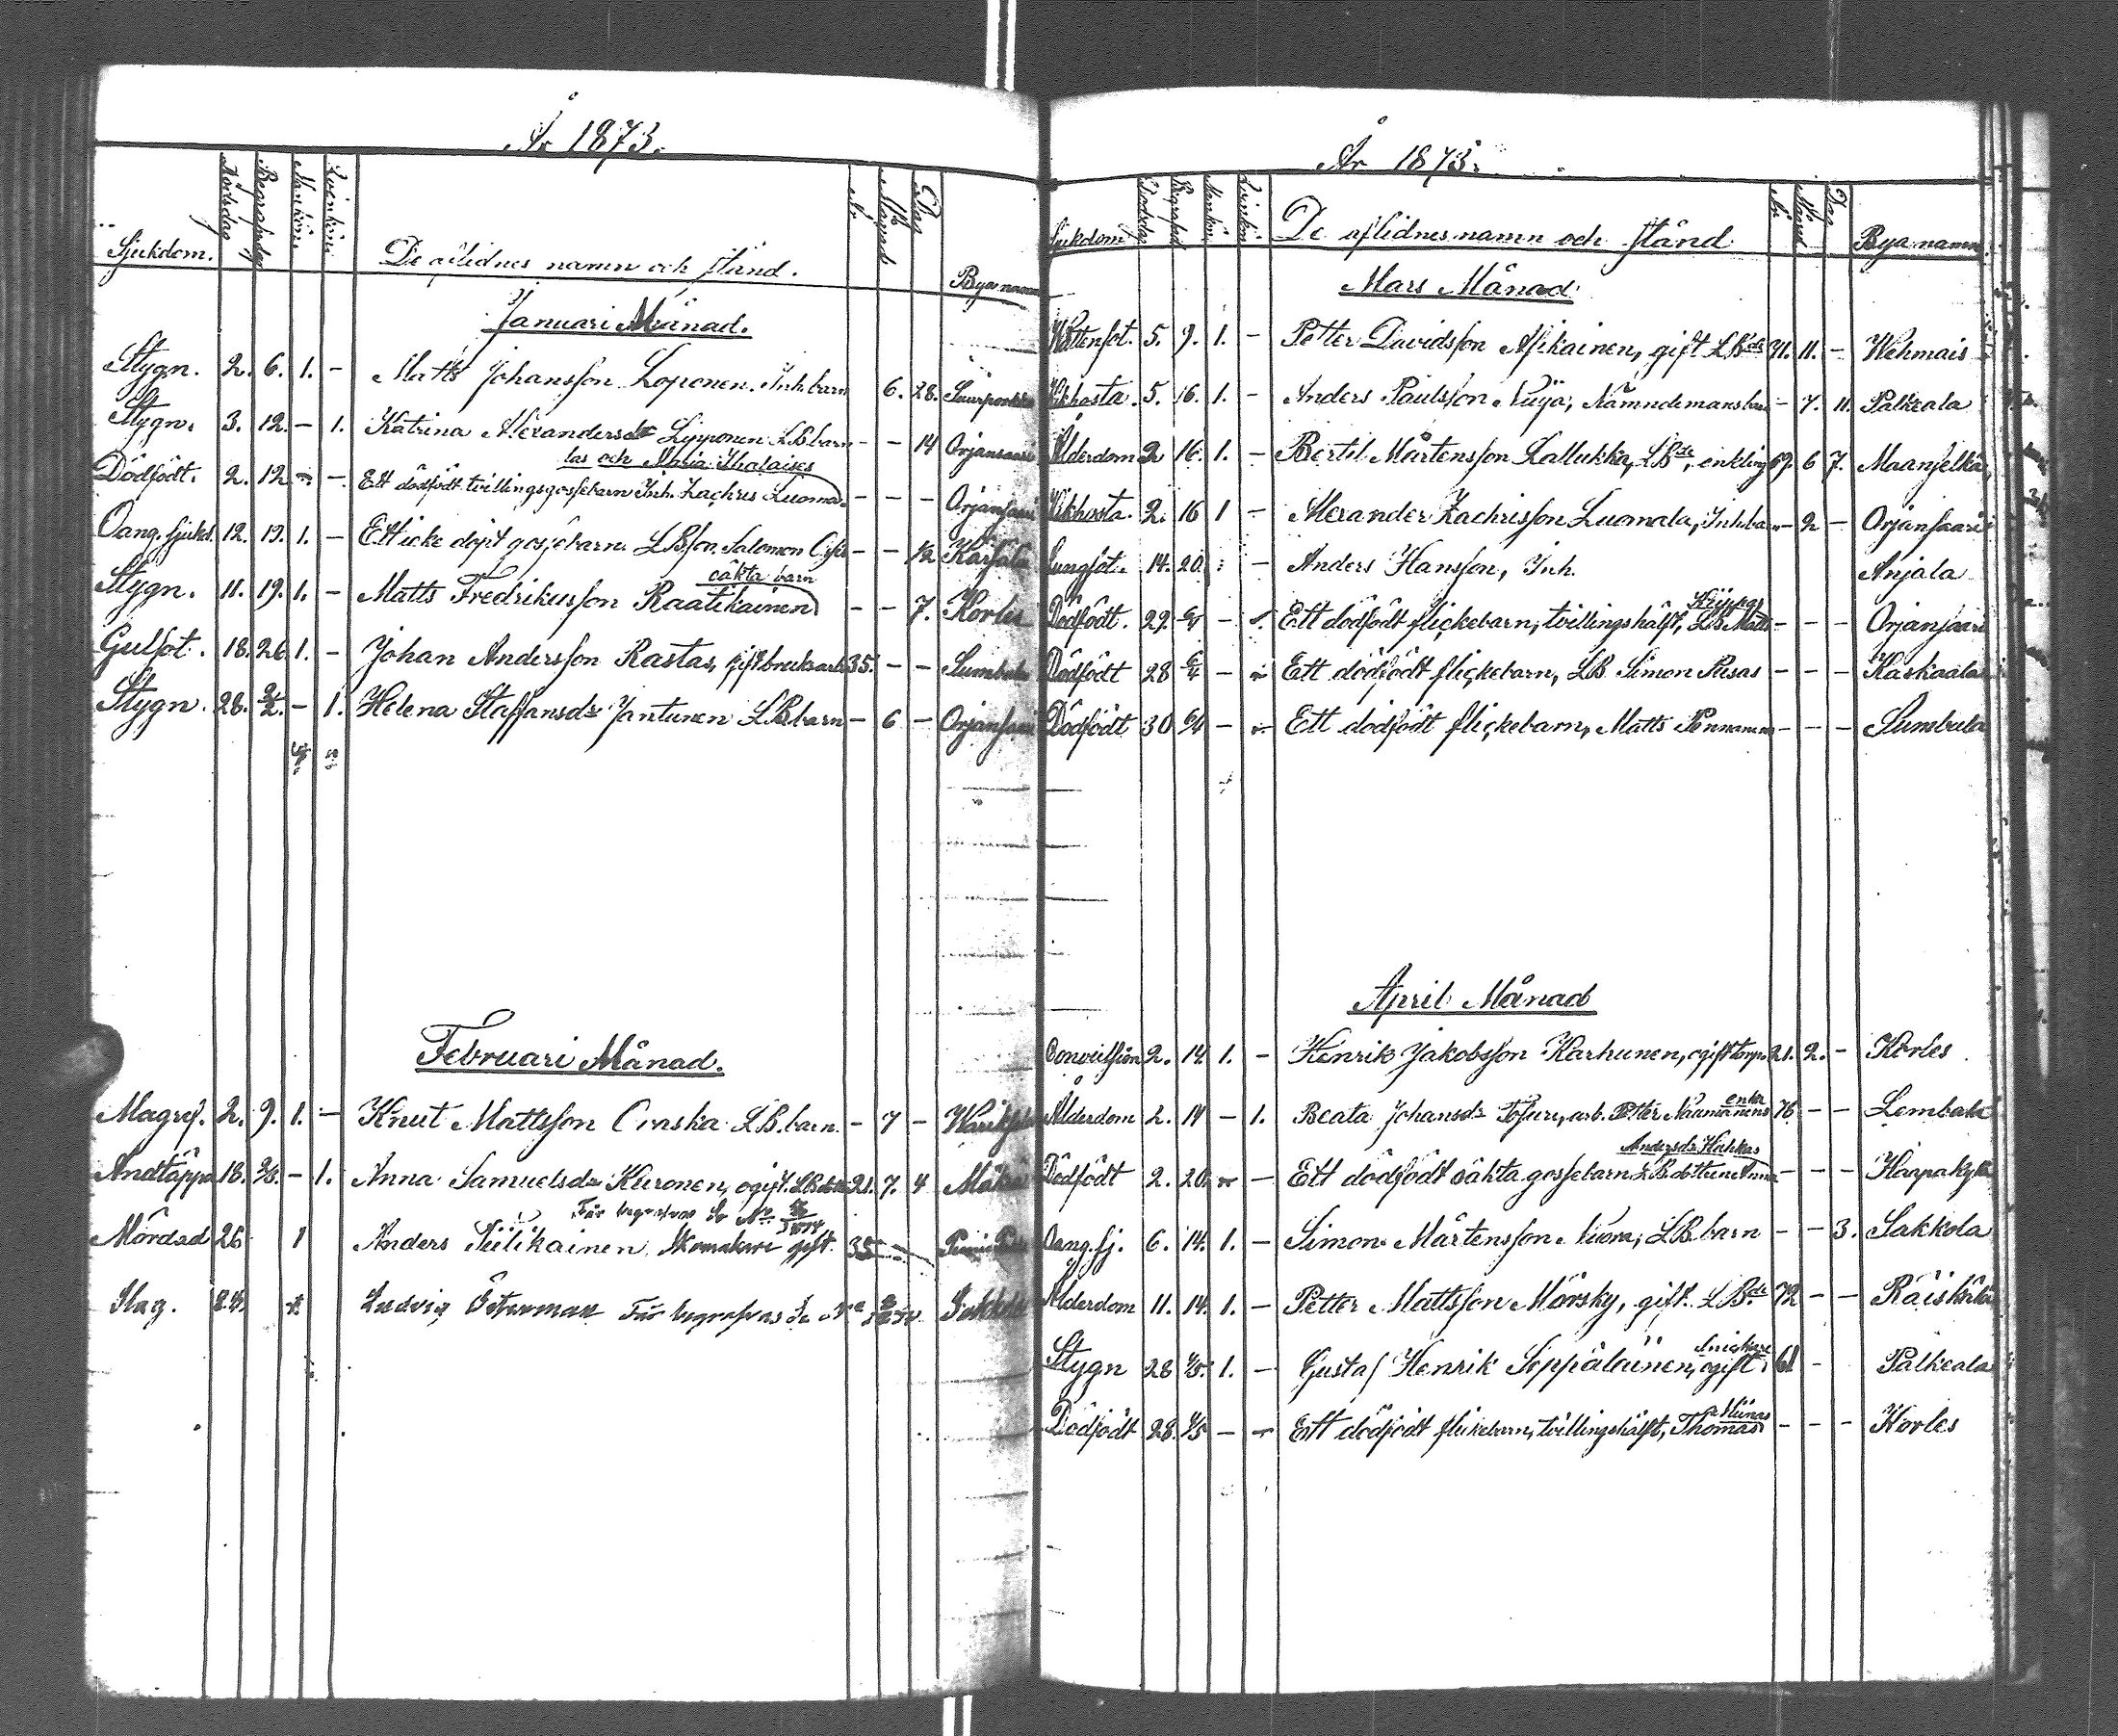 År 1873.
Sjukdom. Dödsdag Begrafndag Mankön Qvinkön De aflidnes namn och stånd. År Månad Dag Byas namn
Januari Månad.
Stygn. 2. 6. 1. – Matts Johansson Loponen. Inh. barn 6. 28.
Stygn. 3. 12. – 1. Katrina Alexandersdr Lyyponen LB. barn – – 14 Orjansaari
las och Maria Ihalaises
Dödfödt. 2. 12 – Ett dödfödt tvillingsgossebarn Inh. Zachris Luoma – – – Orjansaari
Oang. sjukd. 12. 19. 1. – Ett icke döpt gossebarn. LBson Salomon – – 1/2 Karsala
oäkta barn
Stygn. 11. 19. 1. – Matts Fredriksson Raatikainen – – 7. Korles
Gulsot. 18. 26 1. – Johan Andersson Rastas, gift bruksarb 35. – – Sumbula
Stygn. 28. 2/2. – 1. Helena Staffansdr Jantunen LB. barn – 6 – Orjansaari
Februari Månad.
Magref. 2. 9. 1. – Knut Mattsson Oraska LB. barn. – 7 –
Andtäppa 18. – 1. Anna Samuelsdr Kuronen, ogift. 21. 7. 4
Får begrafvas
Mördad 26 1 Anders Skomakare gift. 35
Slag. Ludvig Österman Får begrafvas
År 1873.
Sjukdom Dödsdag Begrafnd Mankön Qvinkön De aflidnes namn och stånd År Månad Dag Byanamn
Mars Månad
Vattensot. 5. 9. 1. – Petter Davidsson Asikainen, gift LBde 71. 11. – Wehmais
Kikhosta. 5. 16. 1. – Anders Paulsson Nuija, Nämndemansbarn – 7. 11. Palkeala
Ålderdom 2 16. 1. – Bertil Mårtensson Lallukka, LBde, enkling 69. 6 7. Maanselkä
Kikhosta. 2. 16 1 – Alexander Zachrisson Luomala, Inh. barn – 2 – Orjansaari
Lungsot. 14. 20. – Anders Hansson, Inh. Anjala
Dödfödt. 29. 6/4 – Ett dödfödt flickebarn, tvillingshälft, LB. Matts – – – Orjansaari
Dödfödt 28 6/4 – Ett dödfödt flickebarn, LB. Simon Pusas – – – Kaskaala
Dödfödt 30 6/4 – Ett dödfödt flickebarn, Matts Pennanen – – – Sumbula
April Månad
Convulsion 2. 14. 1. – Henrik Jakobsson Karhunen, ogift torp. 21. 2. – Korles
enka
Ålderdom 2. 14 – 1. Beata Johansdr Tofuri, arb. Petter Naumanens 76. – – Lembala
Andersdr Hahkas
Dödfödt 2. 20. – Ett dödfödt oäkta gossebarn LB. dottren Anna – – – Haapakylä
Oang. sj. 6. 14. 1. – Simon Mårtensson Nuora, LB. barn – – 3. Sakkola
Ålderdom 11. 14. 1. – Petter Mattsson Mörsky, gift. LBde 72 – – Räisälä
Snickare
Stygn 28 4/5. 1. – Gustaf Henrik Seppäläinen, ogift. 61 – Palkeala
Dödfödt 28. 4/5 – Ett dödfödt flickebarn, tvillingshälft, Thomas – – – Korles